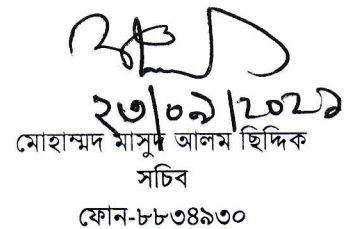 ২৩/০৯/২০২১
মোহাম্মদ মাসুদ আলম ছিদ্দিক
সচিব
ফোন-৮৮৩৪৯৩০